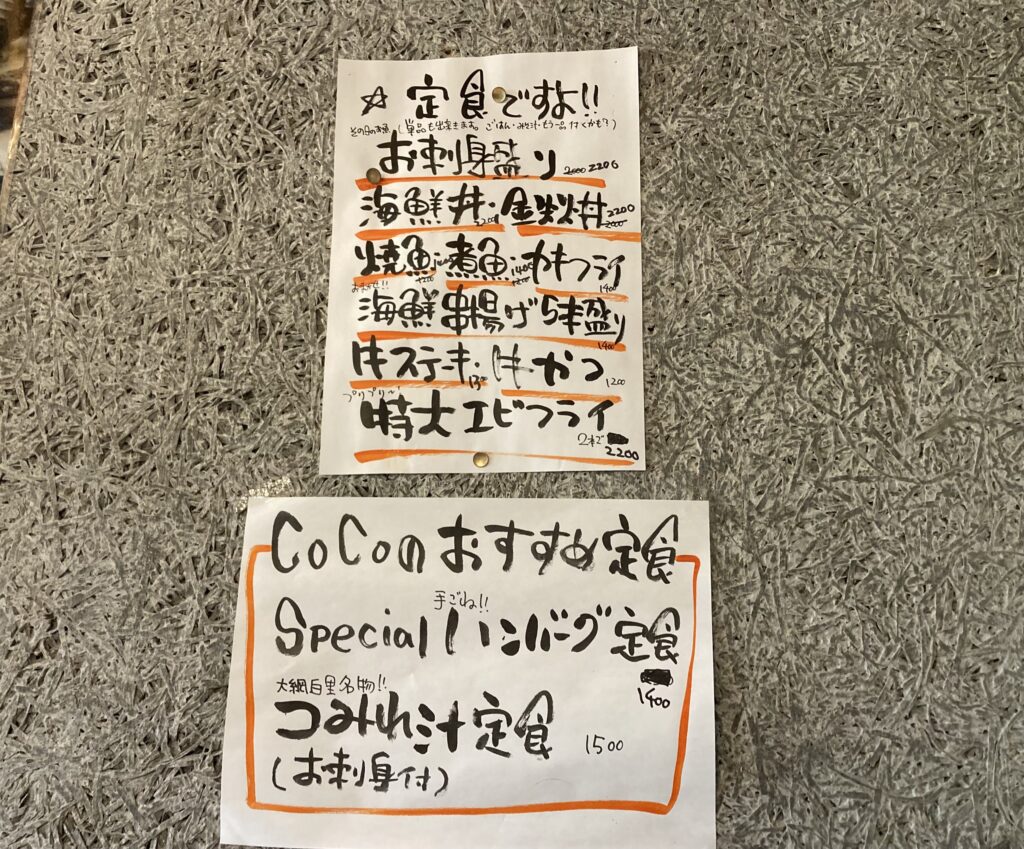 ☆ 定食ですよ!!
その日のお魚 (単品も出来ます。ごはん・みそ汁・もう一品付くかも?)
お刺身盛り 2000 2200
海鮮丼 2200 ・ 金彩丼 2200 2000
焼魚 1200 ・ 煮魚 1400 1200 ・ カキフライ 1400
おまかせ!!
海鮮串揚げ5本盛り 1400
牛ステーキ ・ 牛かつ 1200
プリプリ〜
特大エビフライ
2本で 2200
CoCoのおすすめ定食
手ごね!!
Specialハンバーグ定食
1400
大網白里名物!!
つみれ汁定食 1500
(お刺身付)